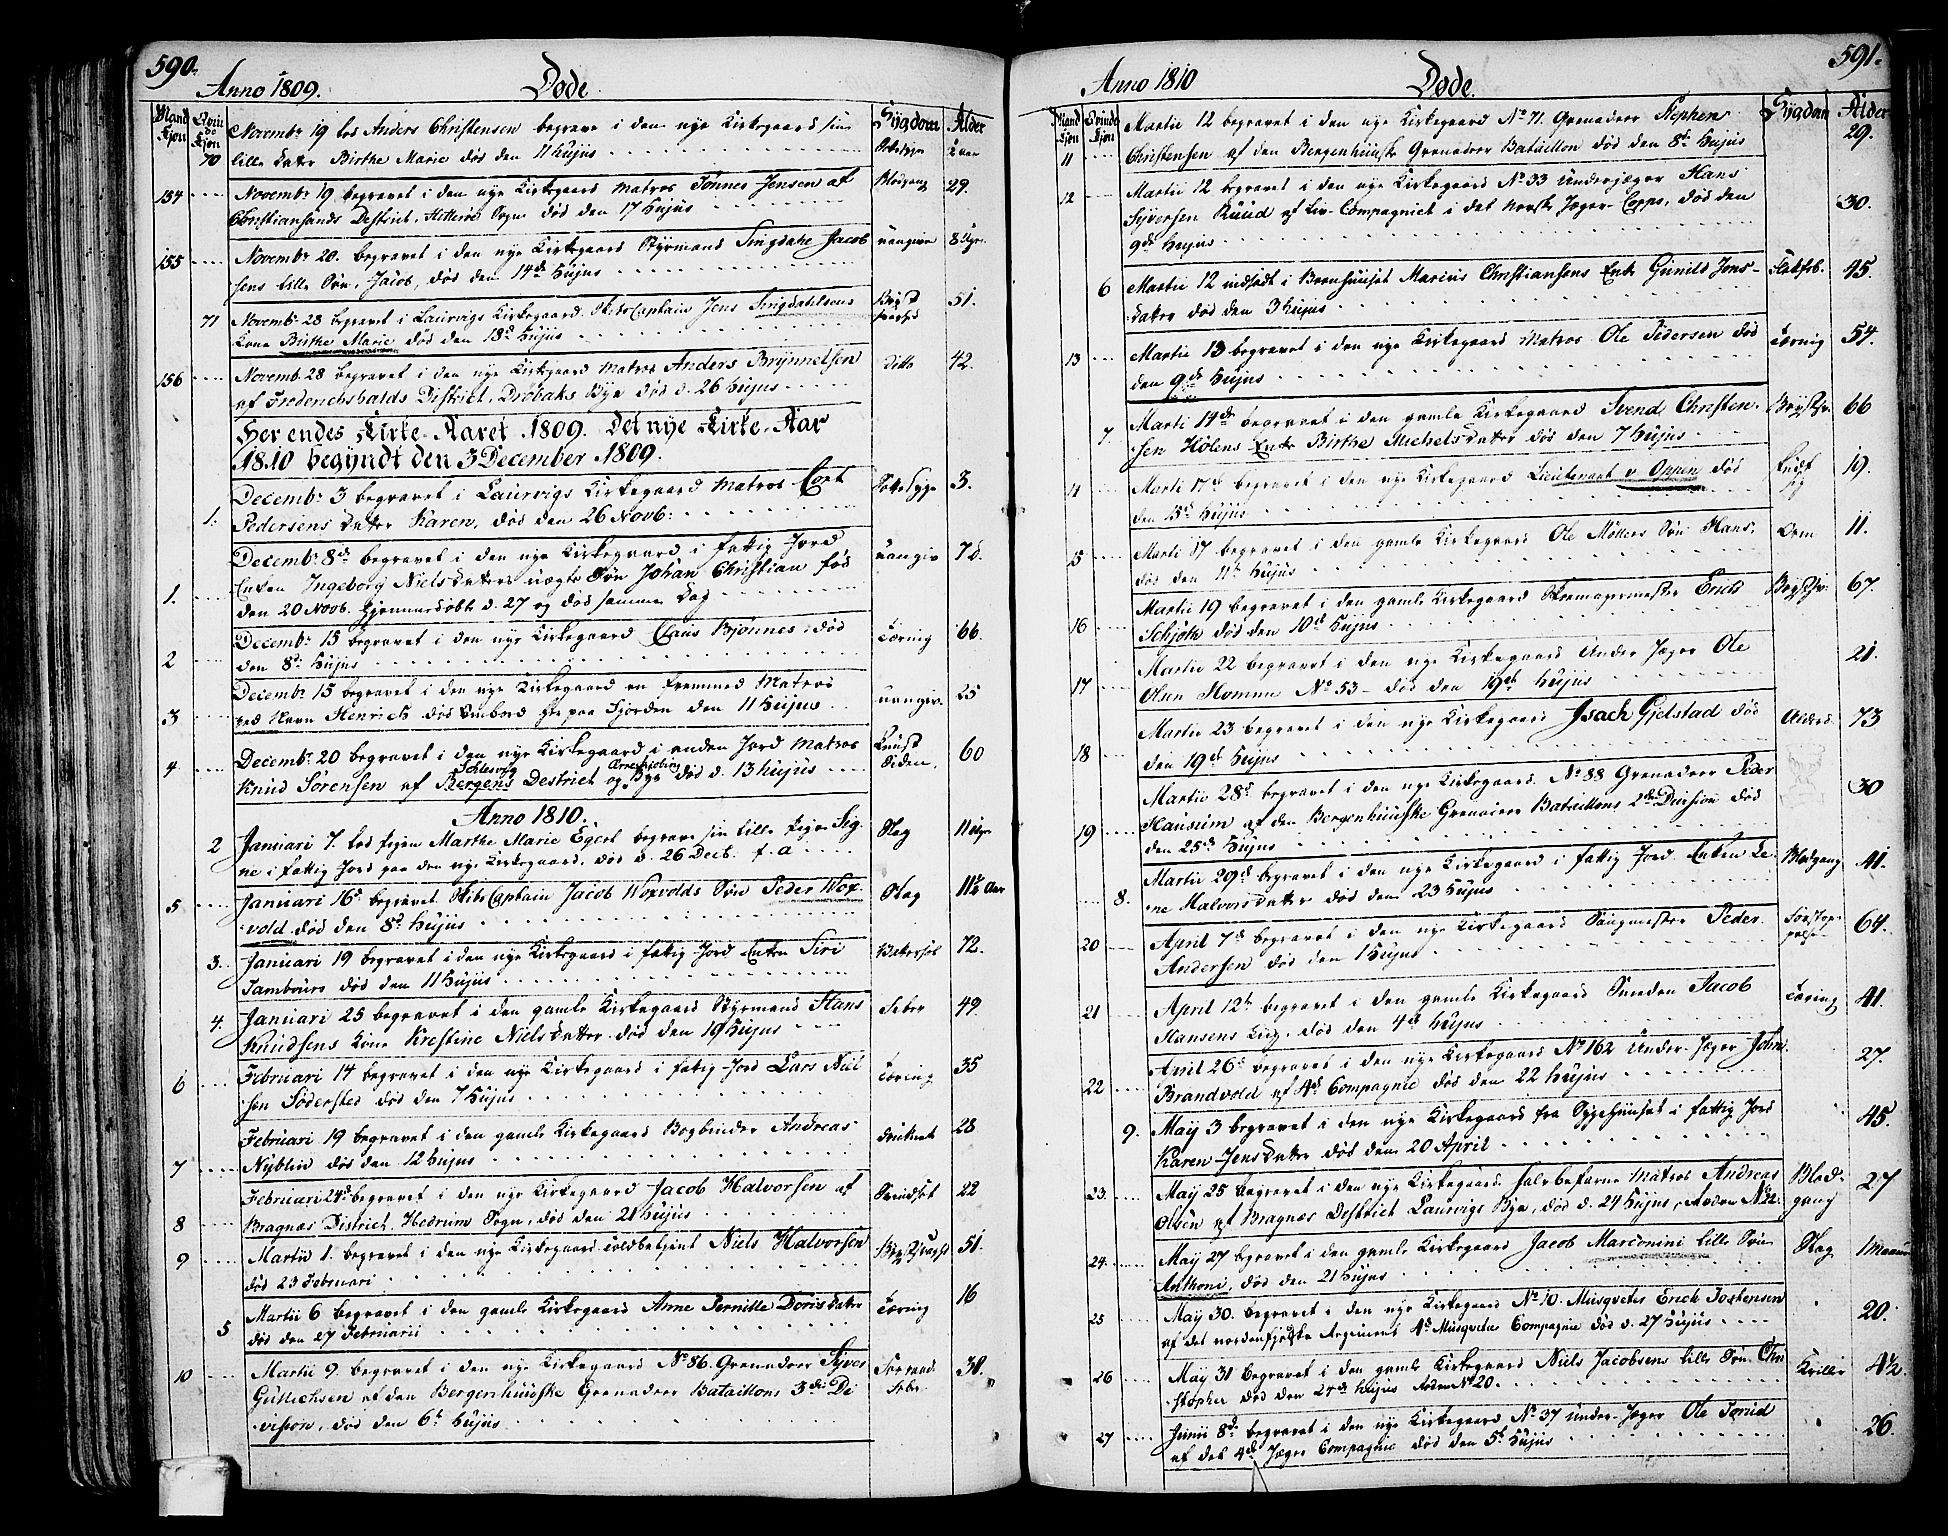 590.
Anno 1809. Døde.
Mand Kjøn Qvinde Kjøn Sygdom Alder
Novembr. 19 lod Anders Christensen begrave i den nye Kirkegaard sin
70 lille Datter Birthe Marie død den 11 hujus
154 Novembr. 19 begravet i den nye Kirkegaard Matros Tønnes Jensen af Blodgang 29.
Christiansands Destrict, Sogn død den 17 hujus
155 Novembr. 20. begravet i den nye Kirkegaard Styrmand Singdahl Jacob uangiven 8 Uger
sens lille Søn, Jacob, død den 14de hujus
71 Novembr. 28 begravet i Laurvigs Kirkegaard Skibs Captain Jens Singdahlsens Bryst 51.
Kone Birthe Marie død den 18d hujus
156 Novemb. 28 begravet i den nye Kirkegaard Matros Anders Brynnelsen Ditto 42.
af Frederichshalds District, Drøbaks Bye død d. 26 hujus
Her endes Kirke-Aaret 1809. Det nye Kirke-Aar
1810 begyndt den 3 December 1809.
Decembr. 3 begravet i Laurvigs Kirkegaard Matros Cort 3.
1. Pedersens Datter Karen, død den 26 Novb.
Decembr. 8d begravet i den nye Kirkegaard i fattig Jord uangiv 7 d.
Enken Ingeborg Nielsdatters uægte Søn Johan Christian fød
1. den 20 Novb. hjemmedøbt d. 27 og død samme Dag
Decembr. 15 begravet i den nye Kirkegaard Claus Bjønnes død Tæring 66.
2 den 8d hujus
Decembr. 15 begravet i den nye Kirkegaard en fremmed Matros uangiv. 25
3 ved Navn Henrich død ombord paa Fjorden den 11 hujus
Decembr. 20 begravet i den nye Kirkegaard i anden Jord Matros 60
4 Knud Sørensen af Bergens Destrict og Bye død d. 13 hujus
Slesvig
Anno 1810.
2 Januari 7. lod Pigen Marthe Marie Egert begrave sin lille Pige Sig- Slag 11 Uger
ne i fattig Jord paa den nye Kirkegaard, død d. 26 Decb. f. a
5 Januari 16d begravet Skibs Captain Jacob Woxvolds Søn Peder Wox- Slag 11½ Aar
vold død den 8d hujus
3. Januari 19 begravet i den nye Kirkegaard i fattig Jord Enken Siri 72.
Tambours død den 11 hujus
4. Januari 25 begravet i den gamle Kirkegaard Styrmand Hans Feber 49.
Knudsens Kone Krestine Nielsdatter død den 19 hujus
6 Februari 14 begravet i den nye Kirkegaard i fattig Jord Lars Niel- Tæring 35
sen Sødersted død den 7 hujus
Februari 19 begravet i den gamle Kirkegaard Bogbinder Andreas druknet 28
7 Nyblin død den 12 hujus
Februari 24d begravet i den nye Kirkegaard Jacob Halvorsen af 22
8 Bragnæs District, Hedrum Sogn, død den 21 hujus
9 Martii 1. begravet i den nye Kirkegaard Niels Halvorsen 51.
død 23 Februari
5 Martii 6 begravet i den gamle Kirkegaard Anne Pernille Dorisdatter Tæring 16
død den 27 Februarii
10 Martii 9. begravet i den nye Kirkegaard No. 86. Grenadeer Syver 30.
Gullichsen af den Bergenhuuske Grenadeer Bataillons 3die Di-
vision, død den 6t hujus
591.
Anno 1810 Døde.
Mand Kjøn Qvinde Kjøn Sygdom Alder
Martii 12 begravet i den nye Kirkegaard No. 71. Grenadeer Stephen 29.
11 Christensen af den Bergenhuuske Grenadeer Bataillon død den 8d hujus
12 Martii 12 begravet i den nye Kirkegaard No. 33 Underjæger Hans 30.
Syversen Ruud af Liv-Compagniet i det norske Jæger-Corps, død den
9de hujus
6 Martii 12 indsadt i Marius Christiansens Enke Gunild Jens- 45.
datter død den 3 hujus
13 Martii 13 begravet i den nye Kirkegaard Matros Ole Pedersen død Tæring 54.
den 9de hujus
Martii 14de begravet i den gamle Kirkegaard Svend Christen- Brystsy. 66
7. sen Holens Enke Birthe Michelsdatter død den 7 hujus
Martii 17d begravet i den nye Kirkegaard Lieutenant v. Oppen død 19.
den 15d hujus
15 Martii 17 begravet i den gamle Kirkegaard Ole Møllers Søn Hans. Orm 11.
død den 11te hujus
Martii 19 begravet i den gamle Kirkegaard Skomagermester Erich Brystsy. 67.
16 Schjøth død den 10d hujus
Martii 22 begravet i den nye Kirkegaard Under Jæger Ole 21.
17 Olsen Homme No. 53 - død den 19de hujus
Martii 23 begravet i den nye Kirkegaard Isach Gjelstad død Alderd. 73
18 den 19de hujus
Martii 28d begravet i den nye Kirkegaard. No. 88 Grenadeer Peder 30
19 Hausum af den Bergenhuuske Grenadeer Bataillons 2den Division død
den 25de hujus
Martii 29d begravet i den nye Kirkegaard i fattig Jord. Enken Le- Blodgang 41.
8. ne Halvorsdatter død den 23 hujus
20 April 7d begravet i den nye Kirkegaard Saugmester Peder 64.
Andersen død den 1 hujus
21 April 12te begravet i den gamle Kirkegaard Smeden Jacob Tæring 41.
Hansens død den 4de hujus
22 April 26d begravet i den nye Kirkegaard No 162 Under-Jæger John 27.
Brandvold af 4de Compagnie død den 22 hujus
9. May 3 begravet i den nye Kirkegaard fra Sygehuuset i fattig Jord 45.
Karen Jensdatter død den 20 April
23. May 25 begravet i den nye Kirkegaard halvbefarne Matros Andreas Blod- 27
Olsen af Bragnæs Destrict Laurvigs Bye, død d. 24 hujus, gang
24. May 27 begravet i den gamle Kirkegaard Jacob Marconini lille Søn Slag 1 Maaned
Anthoni, død den 21 hujus
25 May 30. begravet i den nye Kirkegaard No 10. Musqveteer Erich Tostensen 20.
af det nordenfjeldske Regiment 4de Musqveteer Compagnie død d. 27 hujus
26 May 31 begravet i den gamle Kirkegaard Niels Jacobsens lille Søn Chri- 4½
stopher død den 24de hujus No 20.
27 Junii 8d begravet i den nye Kirkegaard No. 37 Under-Jæger Ole Torud 26
af det 4de Jæger Compagnie død den 5t hujus